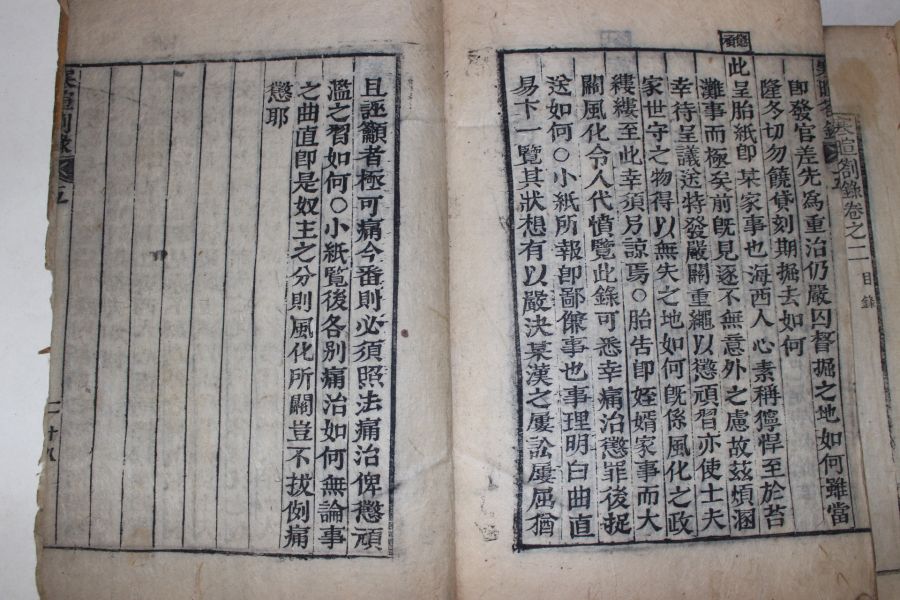 寒暄劄錄卷之二
目錄
懲頑
即發官差先為重治仍嚴囚督掘之地如何雖當
隆冬切勿饒貸刻期掘去如何
此呈胎紙卽某家事也海西人心素稱獰悍至於苔
灘事而極矣前旣見逐不無意外之慮故玆煩溷
幸待呈議送特發嚴關重繩以懲頑習亦使士夫
家世守之物得以無失之地如何旣係風化之政
縷縷至此幸須另諒焉○胎告卽姪婿家事而大
關風化令人代憤覽此錄可悉幸痛治懲罪後捉
送如何○小紙所報卽鄙傔事也事理明白曲直
易卞一覽其狀想有以嚴決某漢之屢訟屢屈猶
且誣籲者極可痛今番則必須照法痛治俾懲頑
濫之習如何○小紙覽後各别痛治如何無論事
之曲直卽是奴主之分則風化所關豈不拔例痛
懲耶